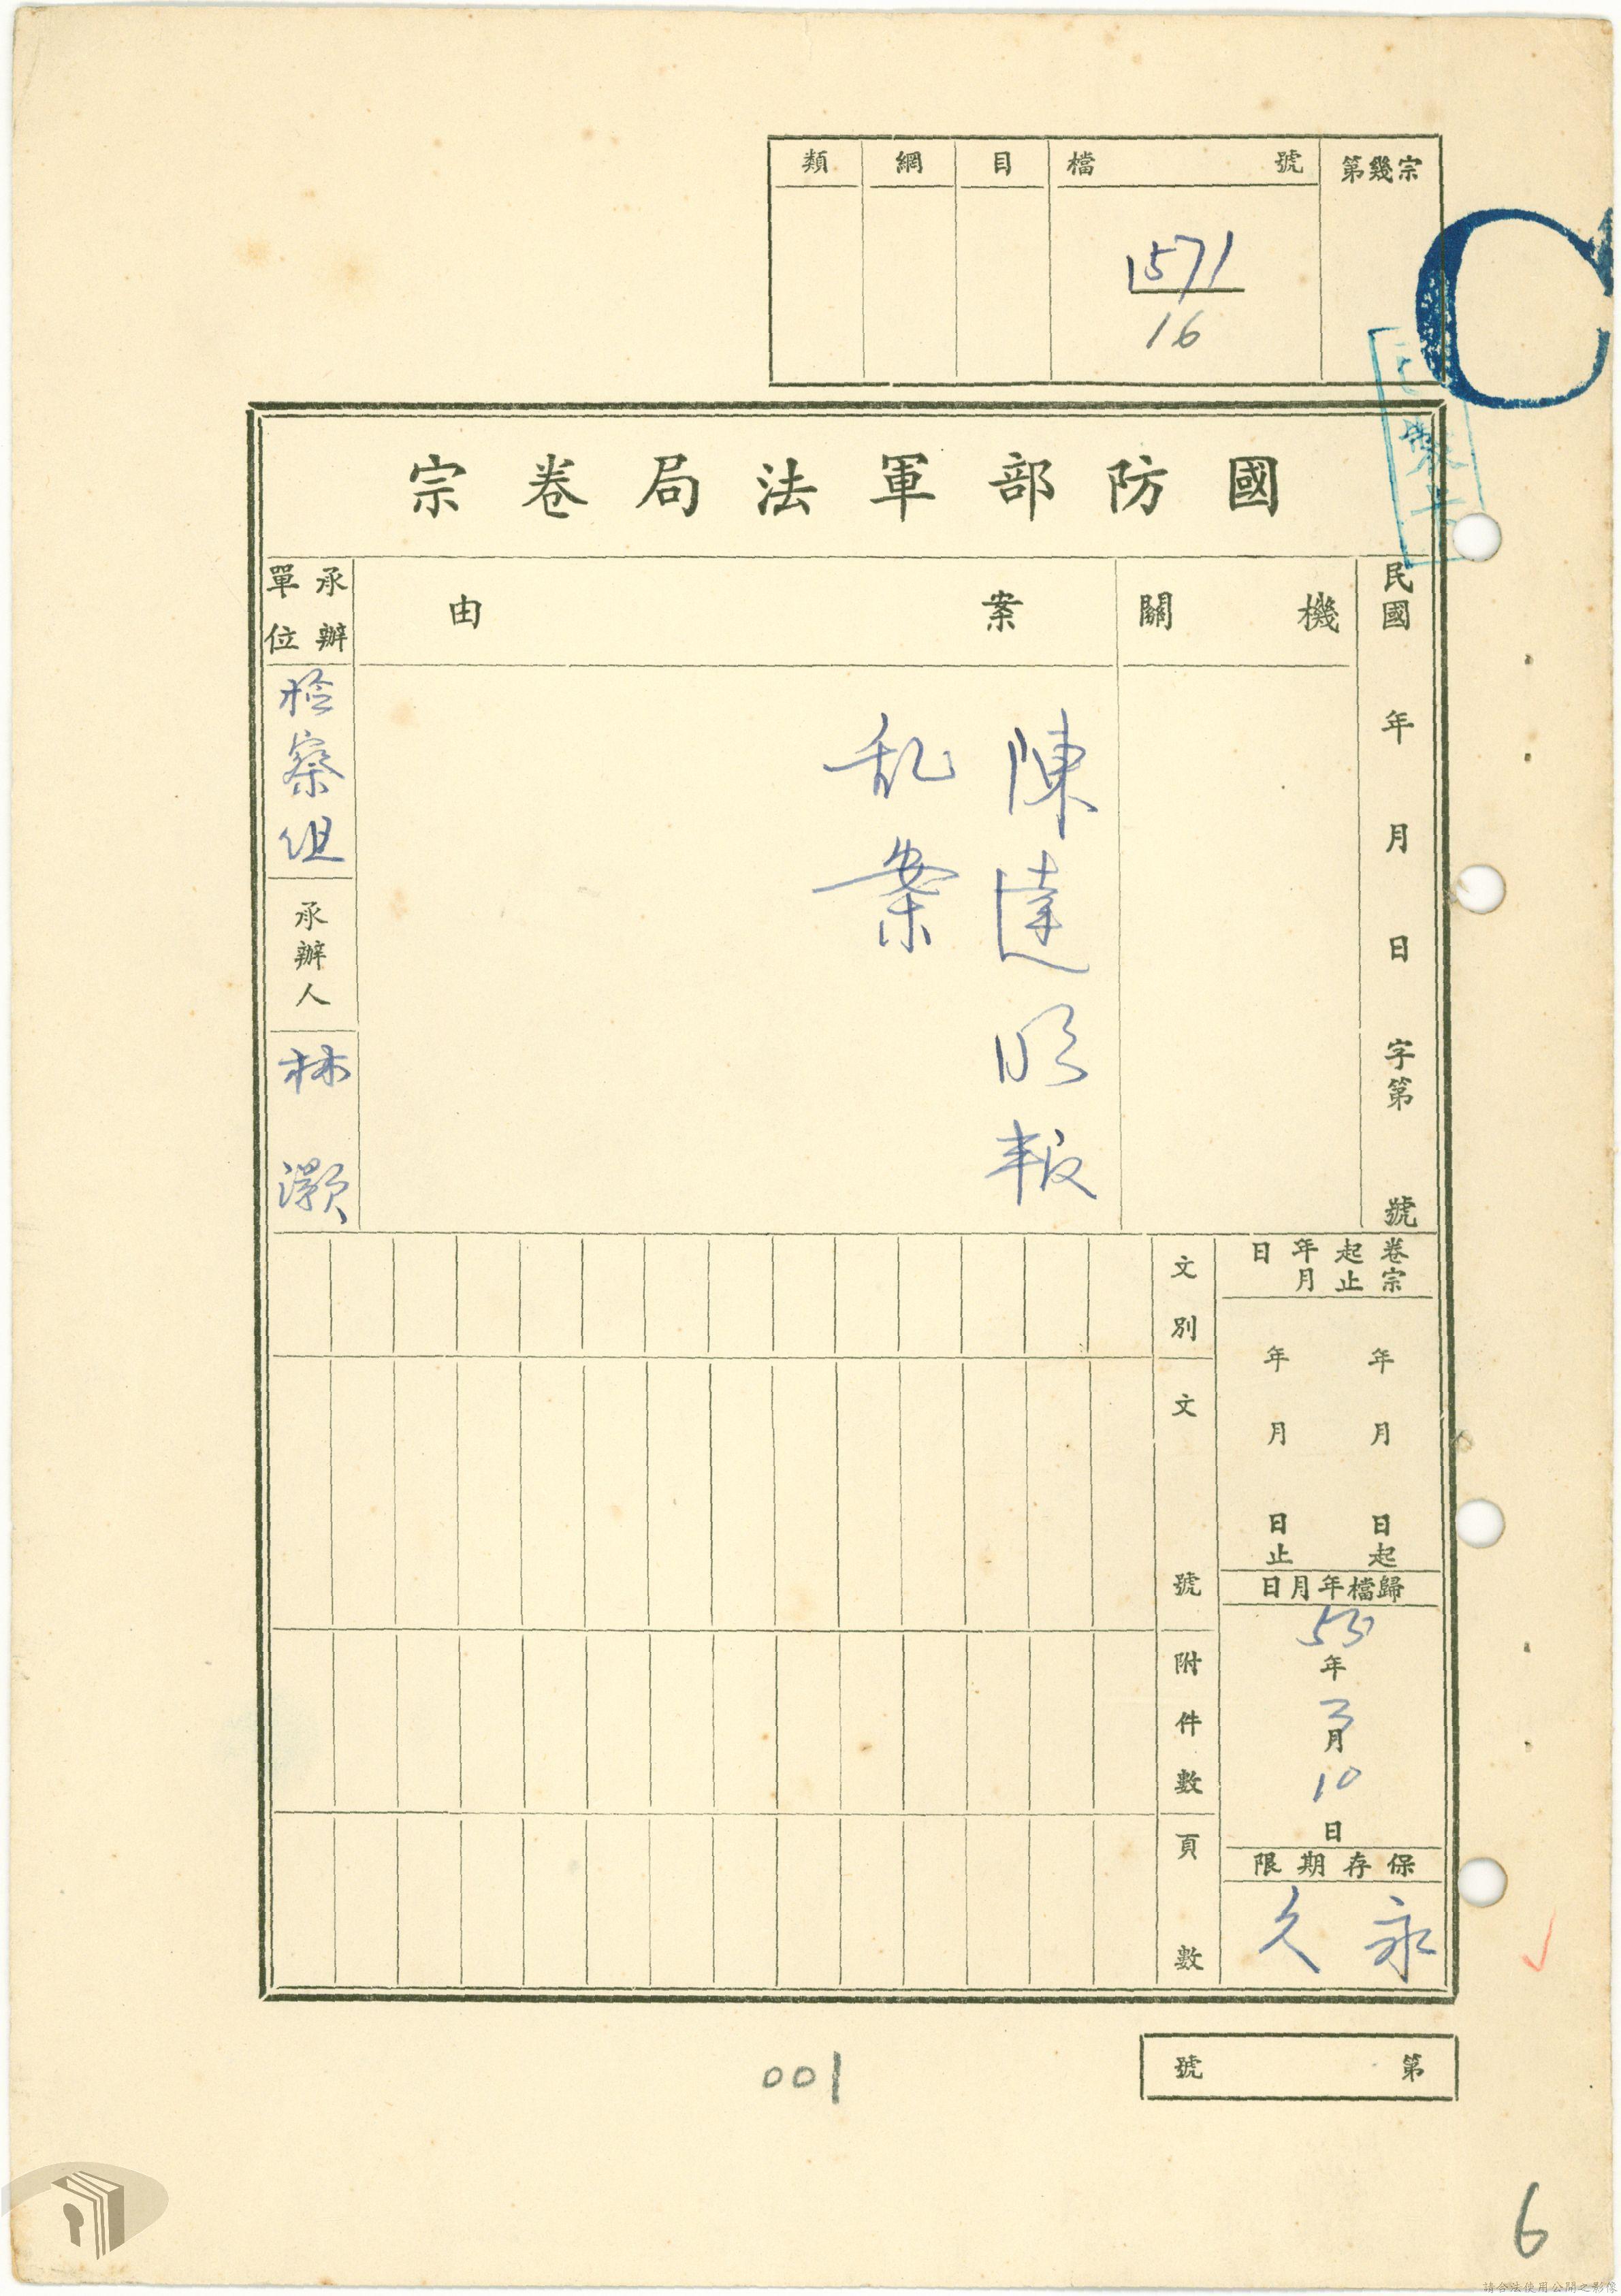 類 綱 目 檔 號 第幾宗
1571
16
C
國防部軍法局卷宗
民國 年 月 日 字第 號
機關
案由
陳達明叛
乱案
承辦單位
检察组
承辦人
林灝
卷宗起止年月日
年 月 日起
年 月 日止
歸檔年月日
53年3月10日
保存期限
永久
文別
文號
附件數
頁數
第 號
001
6
請合法使用公開之影像